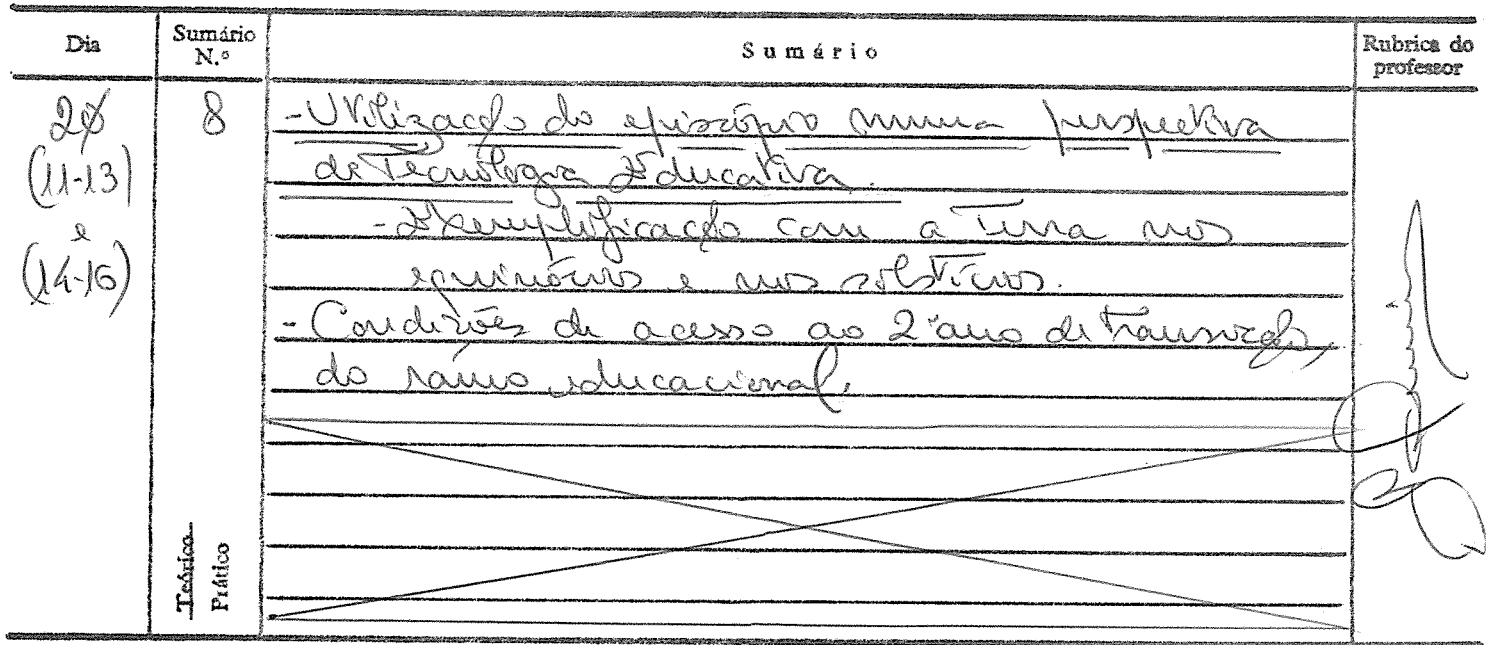 Dia
Sumário N.º
Sumário
Rubrica do professor
20
(11-13)
e
(14-16)
8
- Utilização do episcópio numa perspectiva
de Tecnologia Educativa.
- Exemplificação com a Terra nos
equinócios e nos solstícios.
- Condições de acesso ao 2º ano de transição,
do ramo educacional.
Teórico
Prático